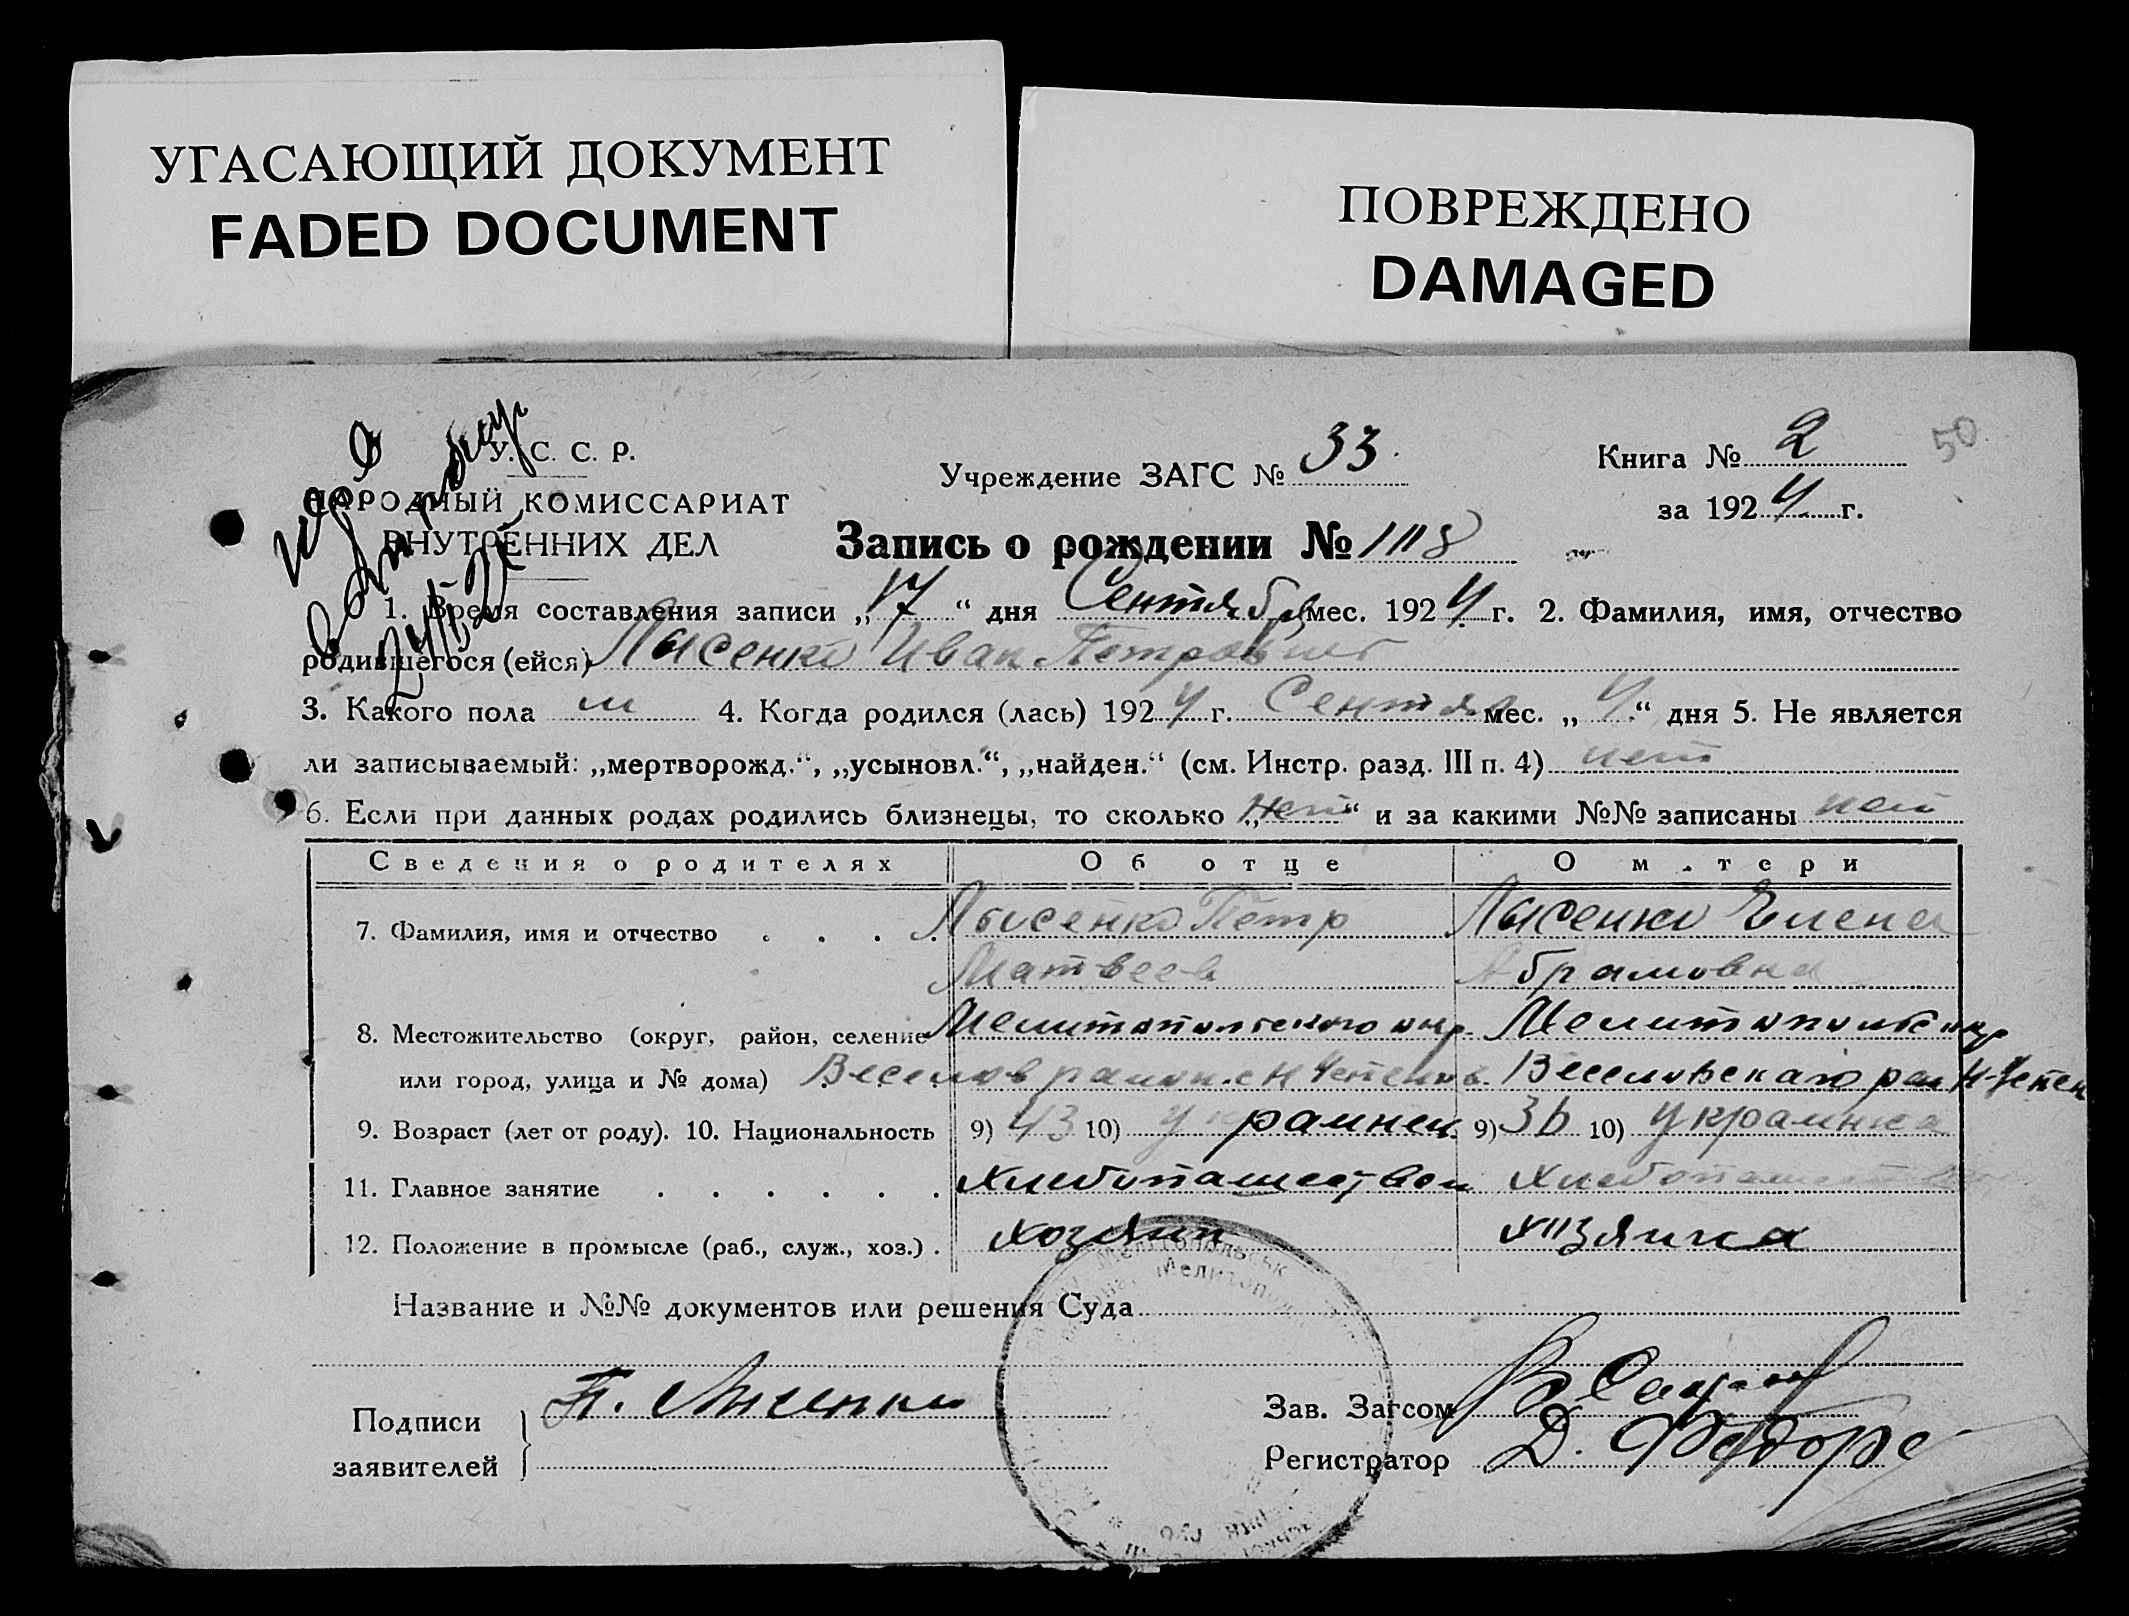 УГАСАЮЩИЙ ДОКУМЕНТ
FADED DOCUMENT
ПОВРЕЖДЕНО
DAMAGED
50
У. С. С. Р.
НАРОДНЫЙ КОМИССАРИАТ
ВНУТРЕННИХ ДЕЛ
Учреждение ЗАГС № 33.
Книга № 2
за 1924 г.
Запись о рождении № 118
1. Время составления записи „17“ дня Сентября мес. 1924 г. 2. Фамилия, имя, отчество
родившегося (ейся) Лысенко Иван Петрович
3. Какого пола м 4. Когда родился (лась) 1924 г. Сентяб мес. „4“ дня 5. Не является
ли записываемый: „мертворожд.“, „усыновл.“, „найден.“ (см. Инстр. разд. III п. 4) нет
6. Если при данных родах родились близнецы, то сколько „нет“ и за какими №№ записаны нет
Сведения о родителях Об отце О м.тери
7. Фамилия, имя и отчество . . . . Лысенко Петр Лысенко Елена
Матвеев Абрамовна
8. Местожительство (округ, район, селение Мелитопольского окр. Мелитопольс окр
или город, улица и № дома) Веселов район с Н Успенов. Веселовского рай Н-Успен
9. Возраст (лет от роду). 10. Национальность 9) 43 10) украинец 9) 36 10) украинка
11. Главное занятие . . . . . . Хлебопашество Хлебопашество
12. Положение в промысле (раб., служ., хоз.) . хозяин хозяика
Название и №№ документов или решения Суда
Подписи заявителей } П. Лысенко
Зав. Загсом
Регистратор Д. Федоре